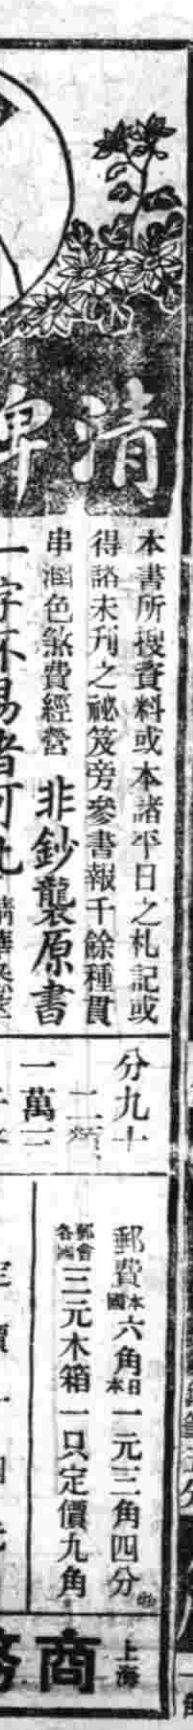 清稗
本書所搜資料或本諸平日之札記或
得諸未刊之祕笈旁參書報千餘種貫
串潤色煞費經營 非鈔襲原書
一字不易者可比
分九十
二類
一萬三
郵費本國六角日本一元三角四分
郵會各國三元木箱一只定價九角
定價
上海
商務